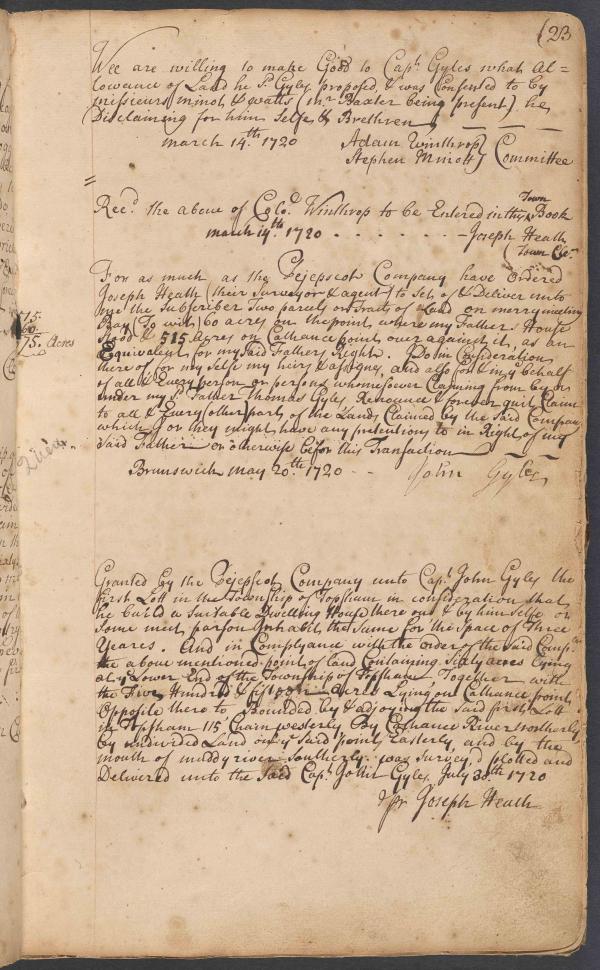 (23
Wee are willing to make Good to Capt. Gyles what Al=
lowance of Land he Sd. Gyles proposed, & was Consented to by
missieurs minot & watts (mr. Baxter being present) he
Disclaiming for him Selfe & Brethren
march 14.th 1720 Adam Winthrop
Stephen Minott } Committee
Recd. the above of Colo. Winthrop to be Entered in this Town Book
march 14th. 1720 - - - - - - - Joseph Heath
Town Cler
For as much as the Pejepscot Company have ordered
Joseph Heath (their Surveyor & agent) to Set of & Deliver unto
me the Subscriber Two parcels or Tracts of Land on merry meeting
Bay (To wit) 60 acres on the point where my Fathers House
Stood & 515 Acres on Cathance point over against it, as an
Equivalent for my Said Fathers Right. Do in Consideration
there of for my Selfe my heirs & assignes, and also for & in behalf
of all & Every person or persons whomesoever Claming from by or
under my Sd. Father Thomas Gyles Renounce & forever quit Claim
to all & Every (other) part of the Lands Claimed by the Said Company
which I or they might have any pretentions to in Right of my
Said Father or otherwise befor this Transaction
Brunswick may 20.th 1720 - - John Gyles
75. Acres
Granted by the Pejepscot Company unto Capt. John Gyles the
first Lott in the Township of Topsham in consideration that
he build a Suitable Dwelling House there on & by himselfe or
Some meet parson Inhabit the Same for the Space of Three
Yeares. And in Compliance with the order of the Said Comp
the above mentioned point of land Containing Sixty acres Lying
at ye Lower End of the Township of Topsham, Together with
the Five Hundred & fifteen acres Lying on Cathance point
Opposite there to Bounded by & adjoyning the Said first Lott
in Topsham 115 Chain westerly By Cathance River northerly
by undivided Land on ye Said point, Easterly, and by the
mouth of muddy river Southerly. was Survey,d plotted and
Delivered unto the Said Capt. John Gyles July 30th 1720
pr Joseph Heath